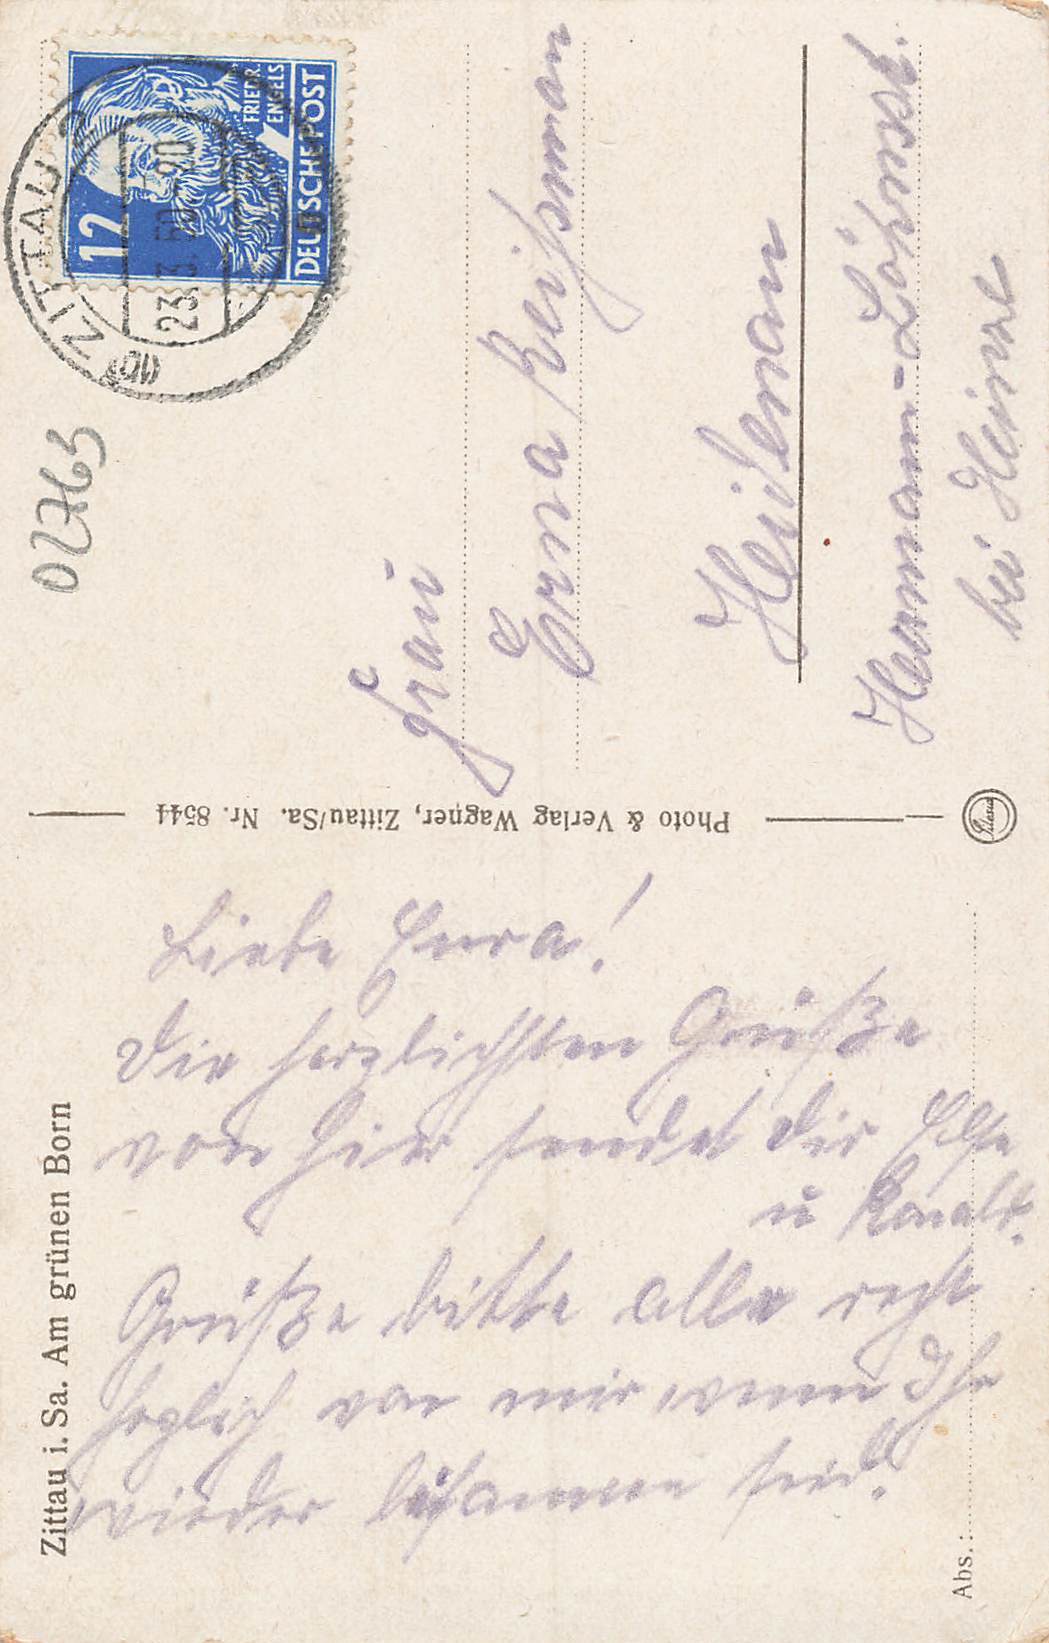 Zittau i. Sa. Am grünen Born
Liebe Erna!
Die herzlichsten Grüße
von hier sendet dir Else
u Ronald.
Grüße bitte alle recht
herzlich von mir wenn Ihr
wieder beisammen seid.
Abs.:
Photo & Verlag Wagner, Zittau/Sa. Nr. 8544
02763
12
FRIEDR. ENGELS
DEUTSCHE POST
ZITTAU 2
23.3.50.-20
Frau
Erna Reißmann
Heidenau
Hermann-Löhnsstr.
bei